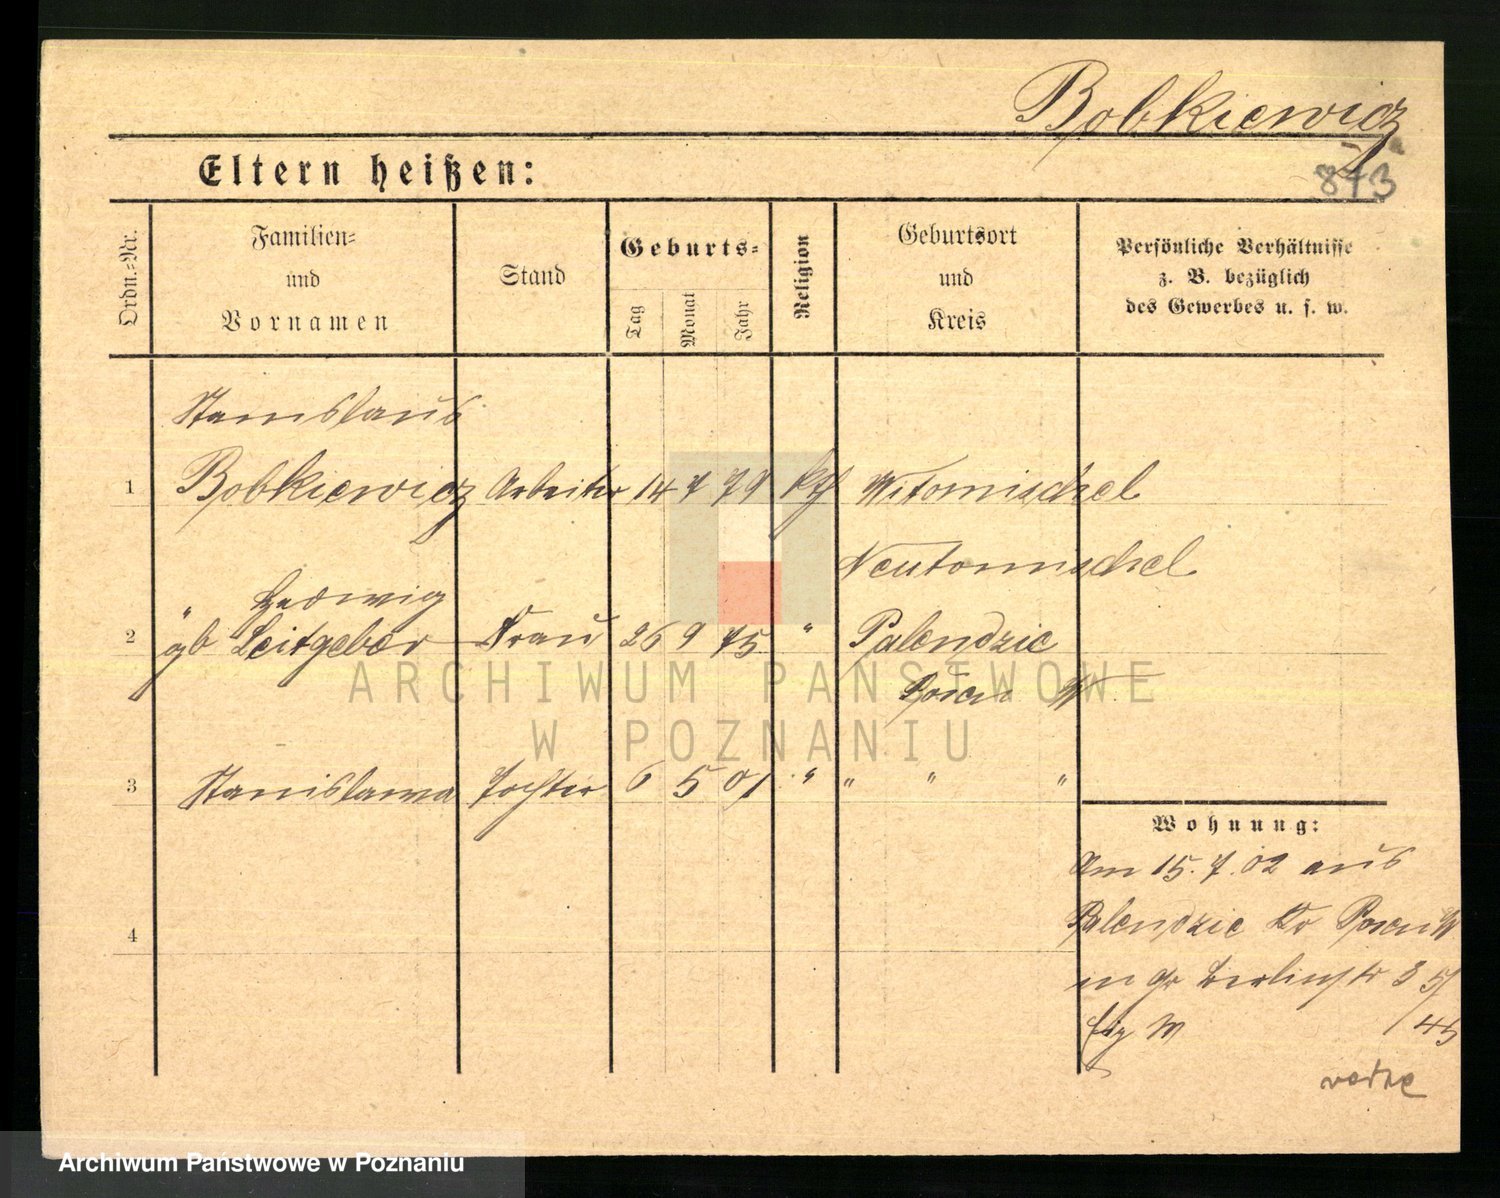 Bobkiewicz
873
Eltern heißen:
Ordn.-Nr.
Familien-
und
Vornamen
Stand
Geburts-
Tag
Monat
Jahr
Religion
Geburtsort
und
Kreis
Persönliche Verhältnisse
z. B. bezüglich
des Gewerbes u. s. w.
Stanislaus
1 Bobkiewicz Arbeiter 14 7 79 kth Witomischel
Neutomischel
" Hedwig
2 gb Leitgeber Frau 26 9 75 " Palendzie
Posen W
3 Stanislawa Tochter 6 5 01 " " " "
Wohnung:
Am 15. 7. 02 aus
4 Palendzie Kr Posen W
in gr Berlinstr 3
Eig W 45
ARCHIWUM PAŃSTWOWE
W POZNANIU
Archiwum Państwowe w Poznaniu